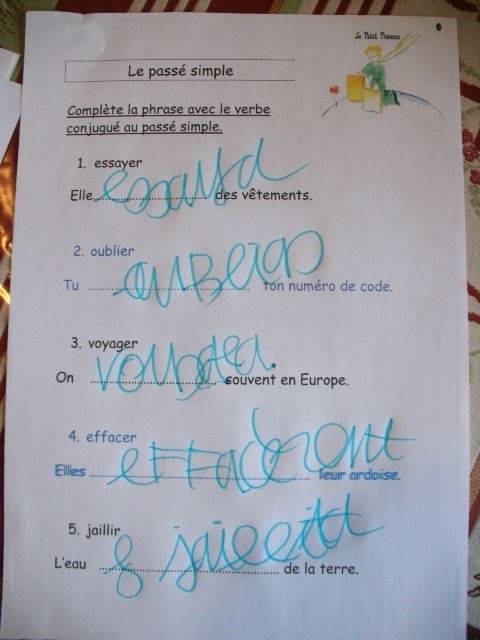 Le Petit Prince
Le passé simple
Complète la phrase avec le verbe
conjugué au passé simple.
1. essayer
Elle essaya des vêtements.
2. oublier
Tu ouBlias ton numéro de code.
3. voyager
On voyagea. souvent en Europe.
4. effacer
Elles effacèrent leur ardoise.
5. jaillir
L'eau jaillit de la terre.